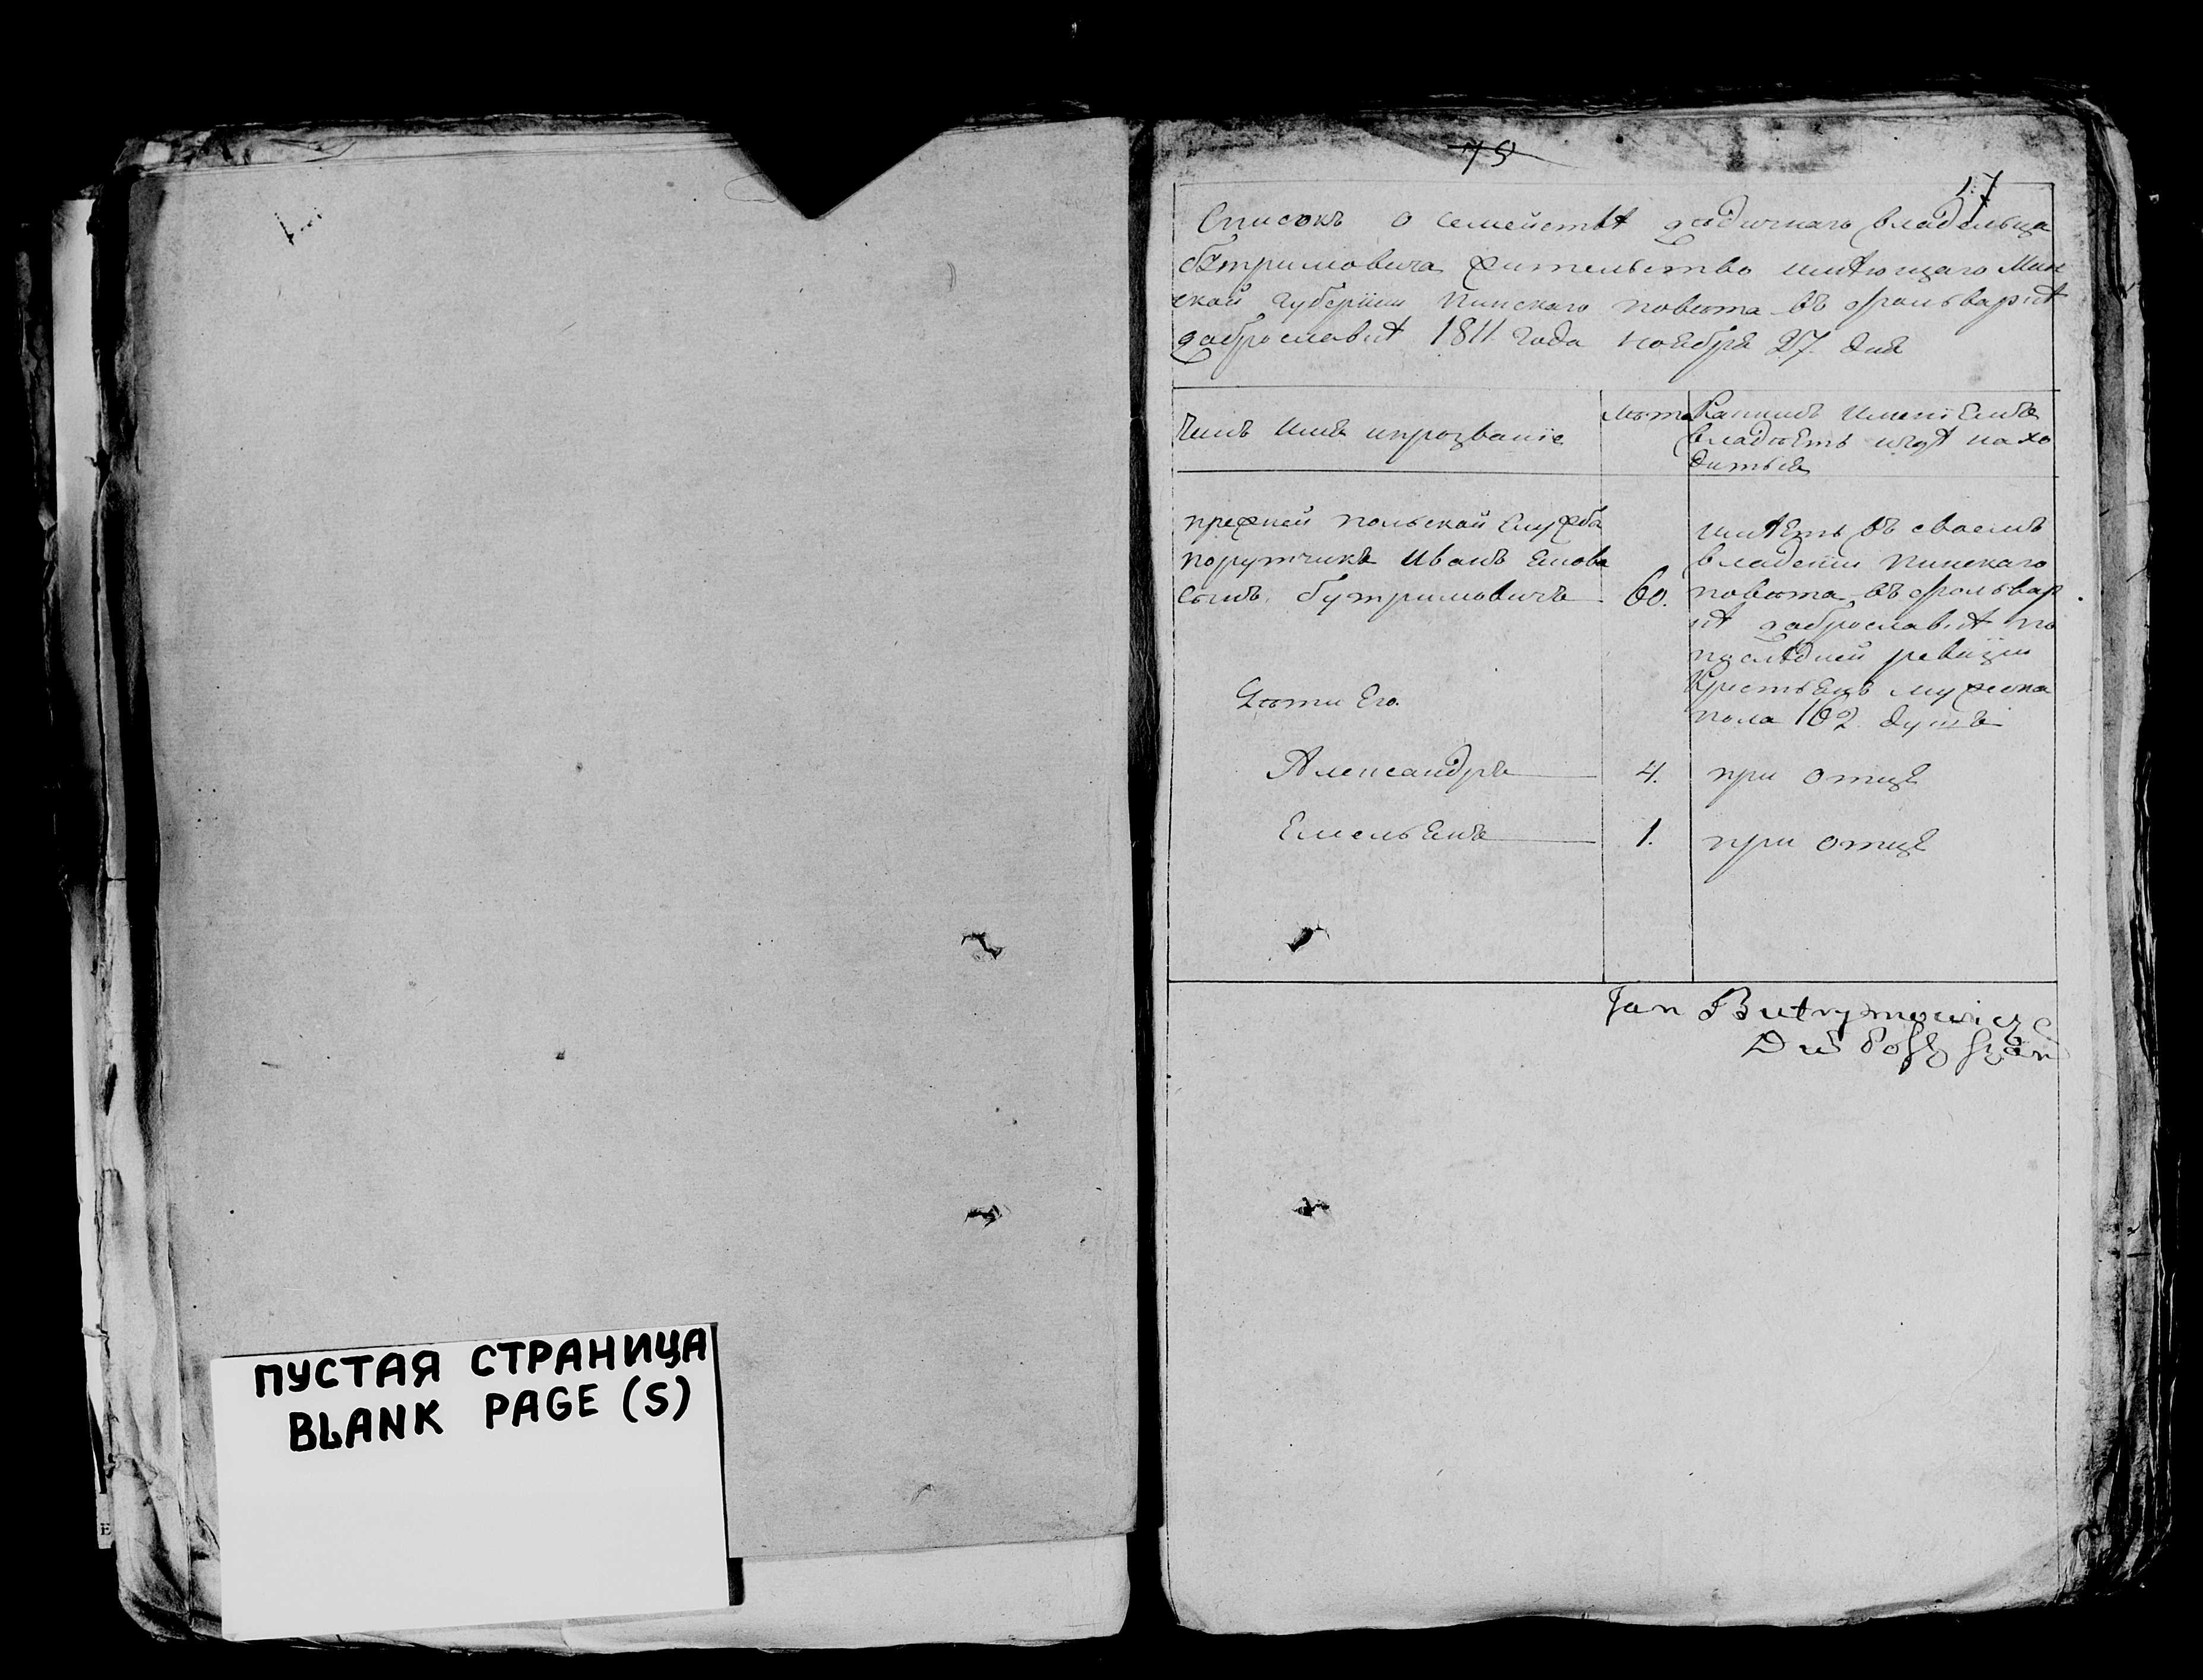 ПУСТАЯ СТРАНИЦА
BLANK PAGE (S)
79
17
Списокъ о семействѣ дѣдичнаго владельца
бѫтримовича жительство имѣющаго Мин
ской губерніи Пинскаго повѣта въ фольваркѣ
доброславкѣ 1811 года ноября 27. дня
Чинъ имя ипрозваніе
лѣта
Какимъ именіемъ
владѣетъ игдѣ нахо
дитьса
прежней польской службы
порутчикъ Иванъ
сынъ бутримовичъ
60.
имѣетъ въ своемъ
владеніи Пинскаго
повѣта въ фольвар
кѣ доброславкѣ по
последней ревизіи
крестьянъ мужска
пола 162 душъ
Дѣти Его.
Александръ
4.
при отцѣ
Емельянъ
1.
при отцѣ
Jan Butrymowicz